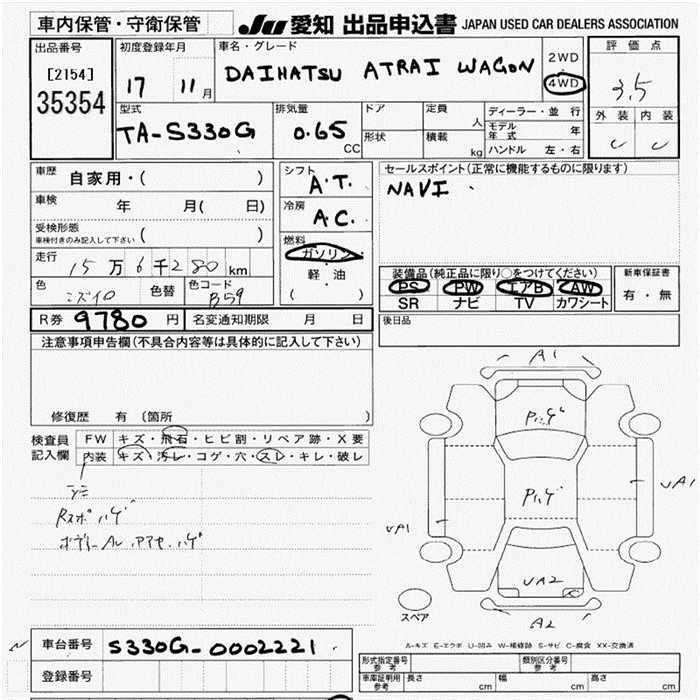 車内保管・守衛保管
JU 愛知 出品申込書 JAPAN USED CAR DEALERS ASSOCIATION
出品番号
[2154]
35354
初度登録年月
17 11月
車名・グレード
DAIHATSU ATRAI WAGON
2WD
4WD
評価点
3.5
外装 内装
C C
型式
TA-S330G
排気量
0.65
CC
ドア
形状
定員 人
積載 kg
ディーラー・並行
モデル年式 年
ハンドル 左・右
車歴 自家用・( )
車検 年 月( 日)
受検形態
車検付きのみ記入して下さい ( )
走行 15万6千280km
色 色替 色コード
B59
シフト
A.T.
冷房
A.C.
燃料
ガソリン
軽・油
( )
セールスポイント(正常に機能するものに限ります)
NAVI
装備品(純正品に限り○をつけてください)
PS PW エアB AW
SR ナビ TV カワシート
新車保証書
有・無
R券 9780円 名変通知期限 月 日
後日品
注意事項申告欄(不具合内容等は具体的に記入して下さい)
修復歴 有(箇所 )
検査員記入欄
FW キズ・飛石・ヒビ割・リペア跡・X要
内装 キズ・汚レ・コゲ・穴・スレ・キレ・破レ
A1
Pハゲ
Pハゲ
UA1
UA1
UA2
A2
スペア
A-キズ E-エクボ U-凹み W-補修跡 S-サビ C-腐食 XX-交換済
車台番号 S330G-0002221
登録番号
形式指定番号 参考
類別区分番号 参考
車庫証明用 参考 長さ cm 幅 cm 高さ cm